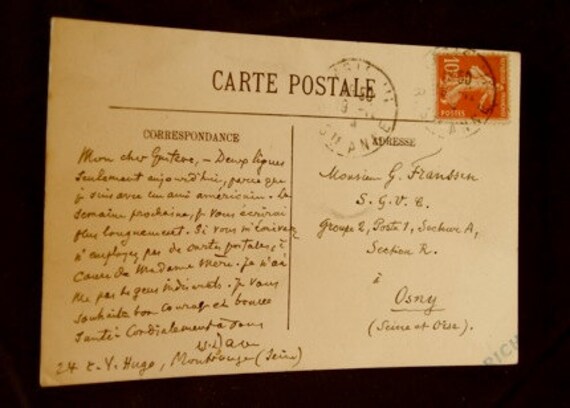 CARTE POSTALE
CORRESPONDANCE
Mon cher Gustave, – Deux lignes
seulement aujourd'hui, parce que
je suis avec un ami américain. La
semaine prochaine, je vous écrirai
plus longuement. Si vous m'écrivez
n'employez pas de cartes postales, à
cause de Madame Mère. Je n'ai
me pas les gens indiscrets. Je vous
souhaite bon courage et bonne
santé. Cordialement à vous
24 r. V. Hugo, Montrouge (Seine)
ADRESSE
Monsieur G. Franssen
S. G. V. C.
Groupe 2, Poste 1, Secteur A,
Section R.
à
Osny
(Seine et Oise).
10c
POSTES
RICH